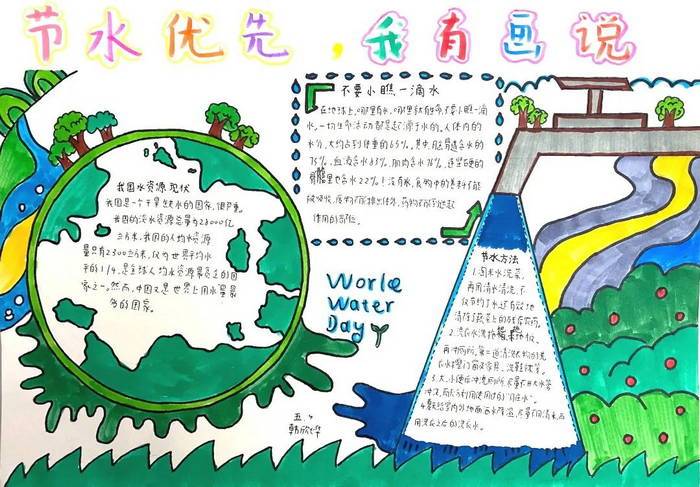 节水优先，我有画说
不要小瞧一滴水
在地球上，哪里有水，哪里就有生命。不要小瞧一滴
水，一切生命活动都是起源于水的。人体内的
水分，大约占到体重的65%。其中，脑髓含水的
75%，血液含水83%，肌肉含水76%，连坚硬的
骨骼里也含水22%！没有水，食物中的养料不能
被吸收，废物不能排出体外，药物不能到达起
作用的部位。
我国水资源现状
我国是一个干旱缺水的国家，很严重。
我国的淡水资源总量有28000亿
立方米，我国的人均水资源
量只有2300立方米，仅为世界平均水
平的1/4，是全球人均水资源最贫乏的国
家之一。然而，中国又是世界上用水量最
多的国家。
Worle
Water
Day
节水方法
1.淘米水洗菜，
再用清水清洗，不
仅节约了水，还有效地
清除了蔬菜上的残存农药。
2.洗衣水洗拖
再冲厕所。第二道清洗水
3.大、小便后冲洗厕所，尽量不开大水管
冲洗，而充分利用使用过的"旧水"。
4.夏天给室内外地面洒水降温，尽量不用清水，而
用洗衣之后的洗衣水。
五、
韩欣烨